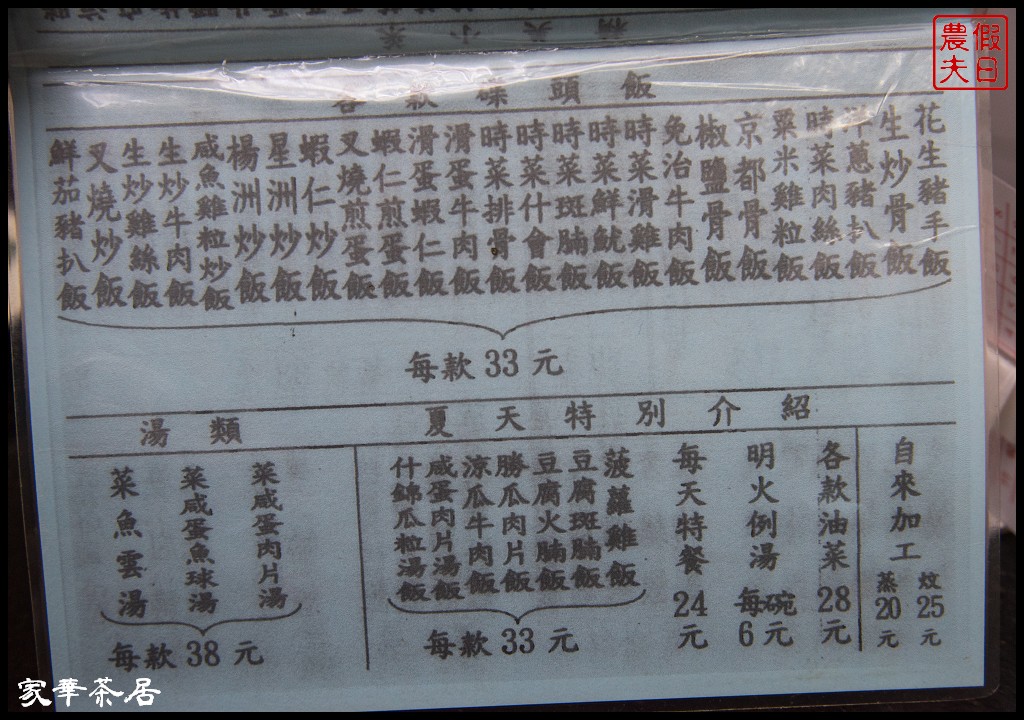 農夫 假日
各款碟頭飯
花生豬手飯
生炒骨飯
洋蔥豬扒飯
時菜肉絲飯
粟米雞粒飯
京都骨飯
椒鹽骨飯
免治牛肉飯
時菜滑雞飯
時菜鮮魷飯
時菜斑腩飯
時菜什會飯
時菜排骨飯
滑蛋牛肉飯
滑蛋蝦仁飯
蝦仁煎蛋飯
叉燒煎蛋飯
蝦仁炒飯
星洲炒飯
楊洲炒飯
咸魚雞粒炒飯
生炒牛肉飯
生炒雞絲飯
叉燒炒飯
鮮茄豬扒飯
每款 33 元
夏天特別介紹
自來加工
炆 25 元
蒸 20 元
各款油菜 28 元
明火例湯 每碗 6 元
每天特餐 24 元
菠蘿雞飯
豆腐斑腩飯
豆腐火腩飯
勝瓜肉片飯
涼瓜牛肉飯
咸蛋肉片湯飯
什錦瓜粒湯飯
每款 33 元
湯類
菜咸蛋肉片湯
菜咸蛋魚球湯
菜魚雲湯
每款 38 元
家華茶居